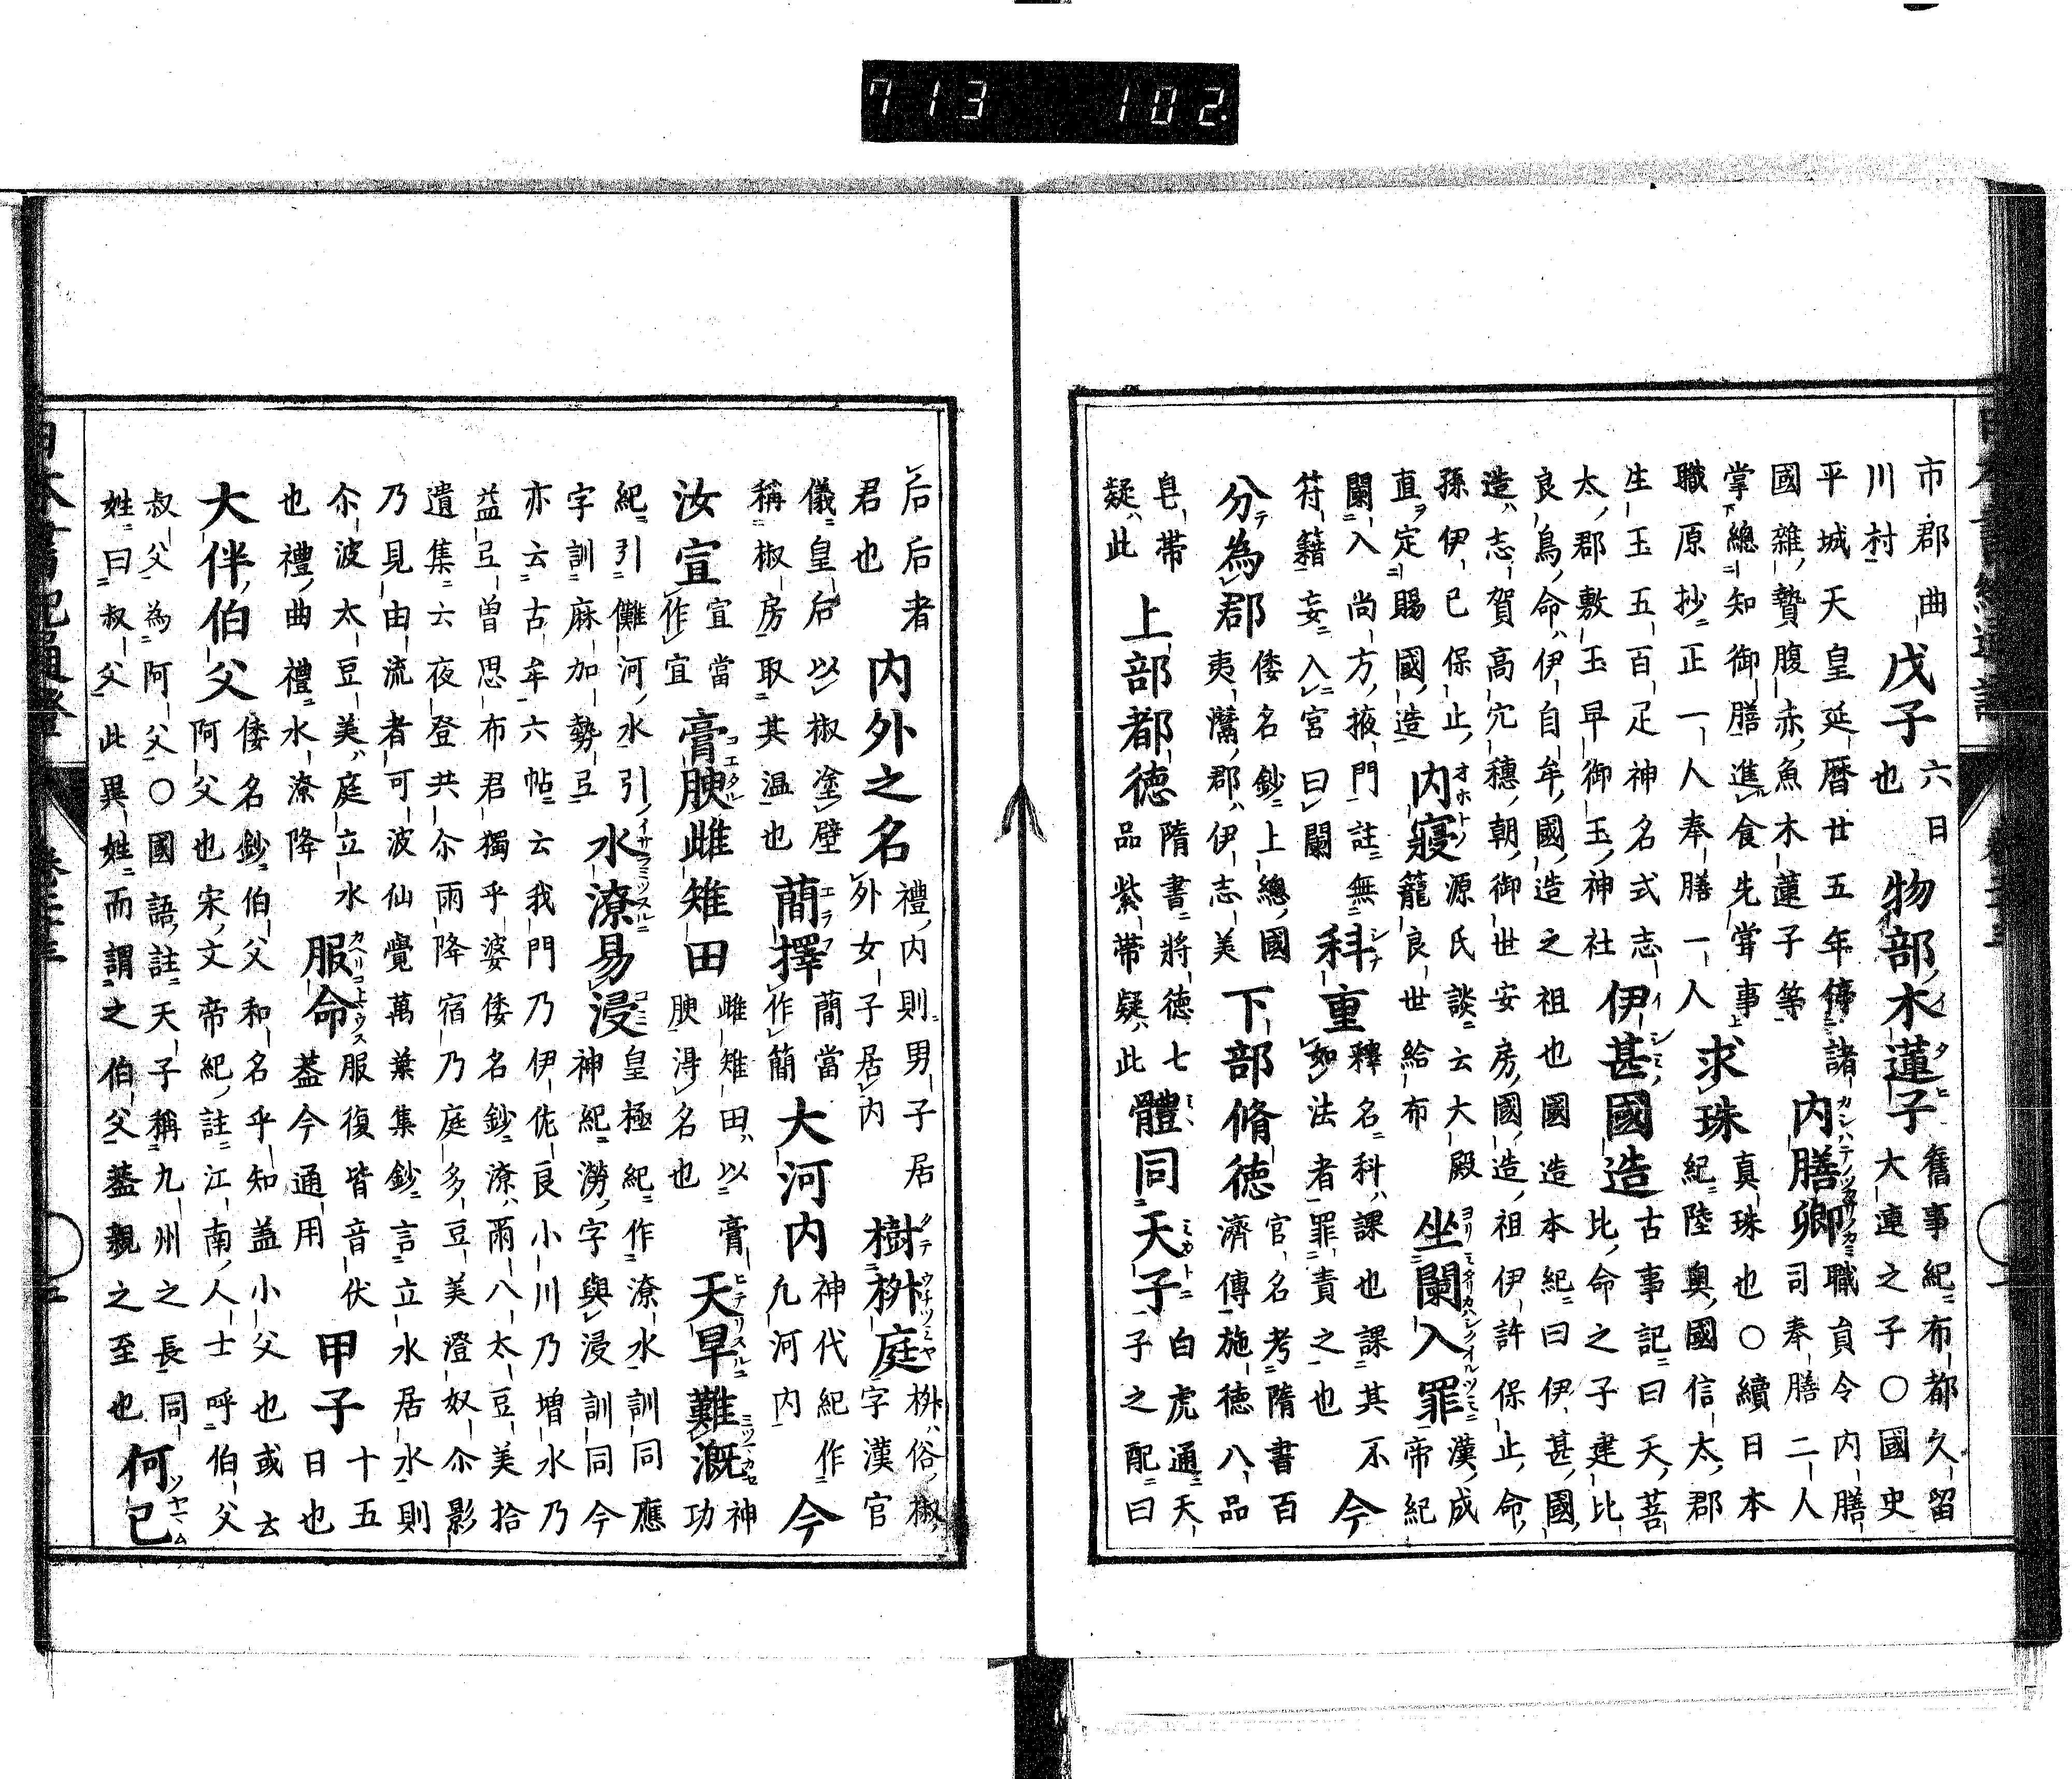 713 102.
市郡曲川村 戊子 六日也 物部木蓮子 舊事紀布都久留大連之子○國史
平城天皇延暦廿五年停諸國雜贄腹赤魚木蓮子等 内膳卿 職員令内膳司奉膳二人
掌總知御膳進食先甞事職原抄正一人奉膳一人 求珠 真珠也○續日本紀陸奥國信太郡
生玉五百疋神名式志太郡敷玉早御玉神社 伊甚國造 古事記曰天菩比命之子建比
良鳥命伊自牟國造之祖也國造本紀曰伊甚國造志賀高穴穗朝御世安房國造祖伊許保止命
孫伊己保止直定賜國造 内寢 源氏談云大殿籠良世給布 坐闌入罪 漢成帝紀
闌入尚方掖門註無符籍妄入宮曰闌 科重 釋名科課也課其不如法者罪責之也 今
分為郡 倭名鈔上總國夷灊郡伊志美 下部脩徳 官名考隋書百濟傳施徳八品
皂帶疑此 上部都徳 隋書將徳七品紫帶疑此 體同天子 白虎通天子之配曰
后后者君也 内外之名 禮内則男子居外女子居内 樹桝庭 桝俗椒字漢官
儀皇后以椒塗壁稱椒房取其温也 蕳擇 蕳當作簡 大河内 神代紀作凡河内 今
汝宣 宣當作宜 膏腴雌雉田 雌雉田以膏腴得名也 天旱難漑 神功
紀引儺河水引字訓麻加勢弖 水潦易浸 皇極紀作潦水訓同應神紀澇字與浸訓同今
亦云古牟六帖云我門乃伊佐良小川乃増水乃益弖曽思布君獨乎婆倭名鈔潦雨八太豆美拾
遺集云夜登共尓雨降宿乃庭多豆美澄奴尓影乃見由流者可波仙覺萬葉集鈔言立水居水則
尓波太豆美庭立水也禮曲禮水潦降 服命 服復皆音伏葢今通用 甲子 十五日也
大伴伯父 倭名鈔伯父和名乎知盖小父也或云阿父也宋文帝紀註江南人士呼伯父
叔父為阿父○國語註天子稱九州之長同姓曰叔父此異姓而謂之伯父葢親之至也 何已